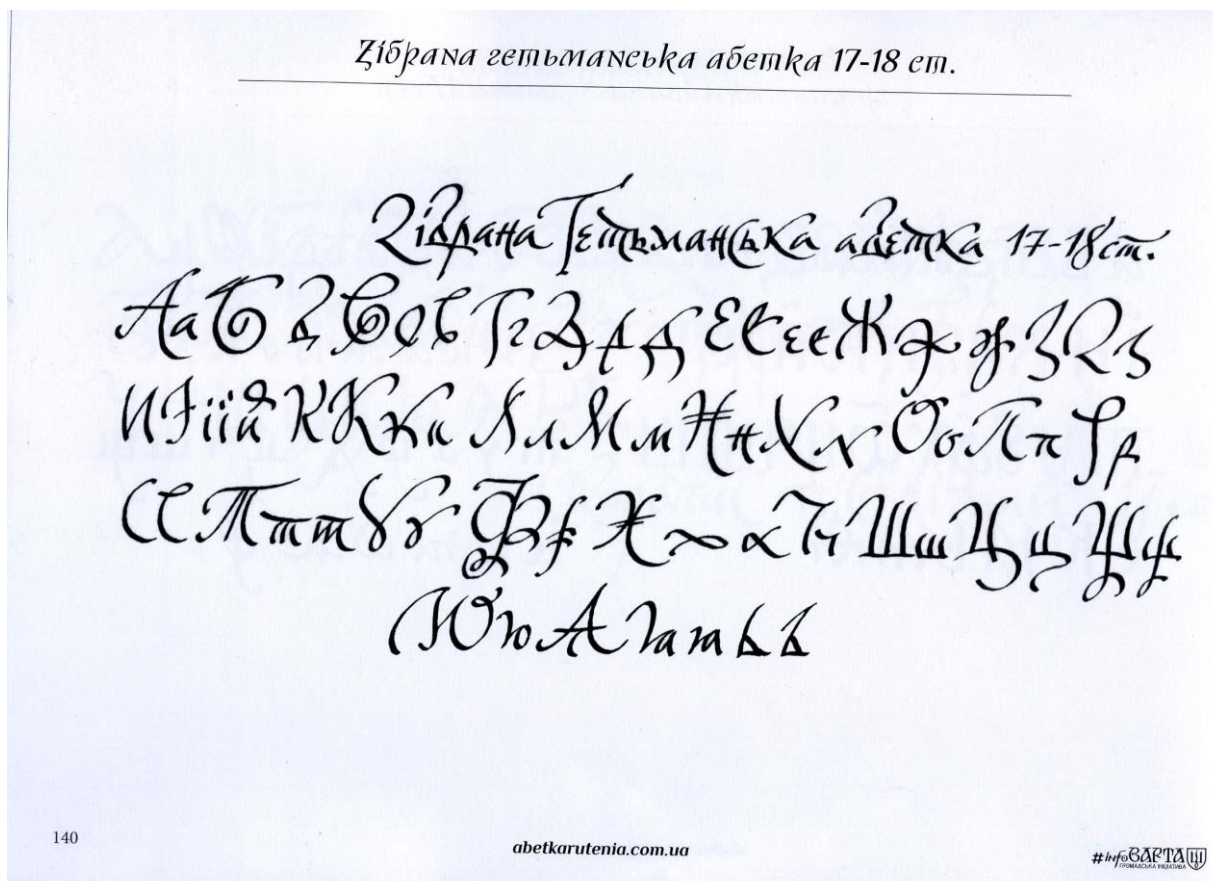 Зібрана гетьманська абетка 17-18 ст.
Зібрана Гетьманська абетка 17-18 ст.
Аа Б д В в Гг Д д д Е Є є є Ж ж ж З З з
И І і ї й К К к к Л л М м Н н Х х О о П п Р р
С С Т т т У у Ф ф Х х х Ч ч Ш ш Ц ц Щ щ
Ю ю Я я я ь ь
140
abetkarutenia.com.ua
#infoВАРТА
ГРОМАДСЬКА ІНІЦІАТИВА